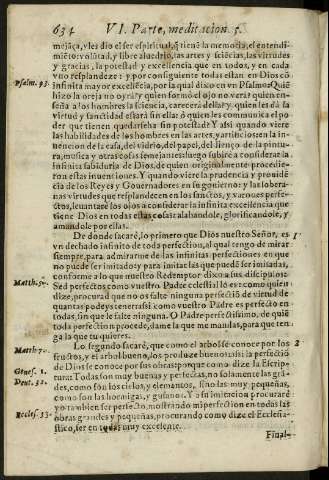 634 VI. Parte, meditacion. 5.
mejāça, y les dio el ser espiritual, q̄ tiene la memoria, el entendi-
miēto: volūtad, y libre aluedrio, las artes y sciēcias, las virtudes
y gracias, la potestad y excelencia que en todos, y en cada
vno resplandeze: y por consiguiente todas estan en Dios cō
Psalm. 93. infinita mayor excelēcia, por la qual dixo en vn Psalmo: Quiē
hizo la oreja no oyrà? y quien formò el ojo no verà? quien ense-
ña la sciencia à los hombres, carecerà della? y quien les dà la
virtud y sanctidad estarà sin ella? ò quien les communica el po-
der que tienen quedarseha sin potestad? Y assi quando viere
las habilidades de los hombres en las artes, y artificios en la in-
uencion de la casa, del vidrio, del papel, del lienço de la pintu-
ra, musica y otras cosas semejantes luego subire a considerar la
infinita sabiduria de Dios, de quien originalmente procedie-
ron estas inuenciones. Y quando viere la prudencia y prouidē
cia de los Reyes y Gouernadores en su gouierno: y las sobera-
nas virtudes que resplandecen en los sanctos, y varones perfec-
tos, leuantare los ojos a considerar la infinita excelēcia que
tiene Dios en todas estas cosas: alabandole, glorificandole, y
amandole por ellas.
De donde sacarè, lo primero que Diòs nuestro Señor, es 1
vn dechado infinito de toda perfection, al qual tengo de mirar
siempre, para admirarme de las infinitas perfectiones en que
no puede ser imitado: y para imitar las que puedē ser imitadas,
conforme a lo que nuestro Redemptor dixo a sus discipulos:
Matth. 5. Sed perfectos como vuestro Padre celestial lo es: como quien
dize, procurad que no os falte ninguna perfectiō de virtud de
quantas podeys tener assi como vuestro Padre es perfecto en
todas, sin que le falte ninguna. O Padre perfectissimo, de quiē
toda perfection procede, dame la que me mandas, para que ten-
ga la que tu quieres.
De segundo sacarè, que como el arbol se conoce por los 2
Matth. 7. fructos, y el arbol bueno, los produze buenos: assi la perfectiō
de Dios se conoce por sus obras: porque como dize la Escrip-
Genes. 1. tura: Todas son muy buenas y perfectas, no solamente las grā-
Deut. 32. des, como son los cielos, y elementos, sino las muy pequeñas,
como son las hormigas, y gusanos. Y a su imitacion procurarè
yo tambien ser perfecto, mostrando mi perfection en todas las
Eccles. 33. obras grandes y pequeñas, procurando como dize el Ecclesia-
stico, ser en todas muy excelente.
Final-